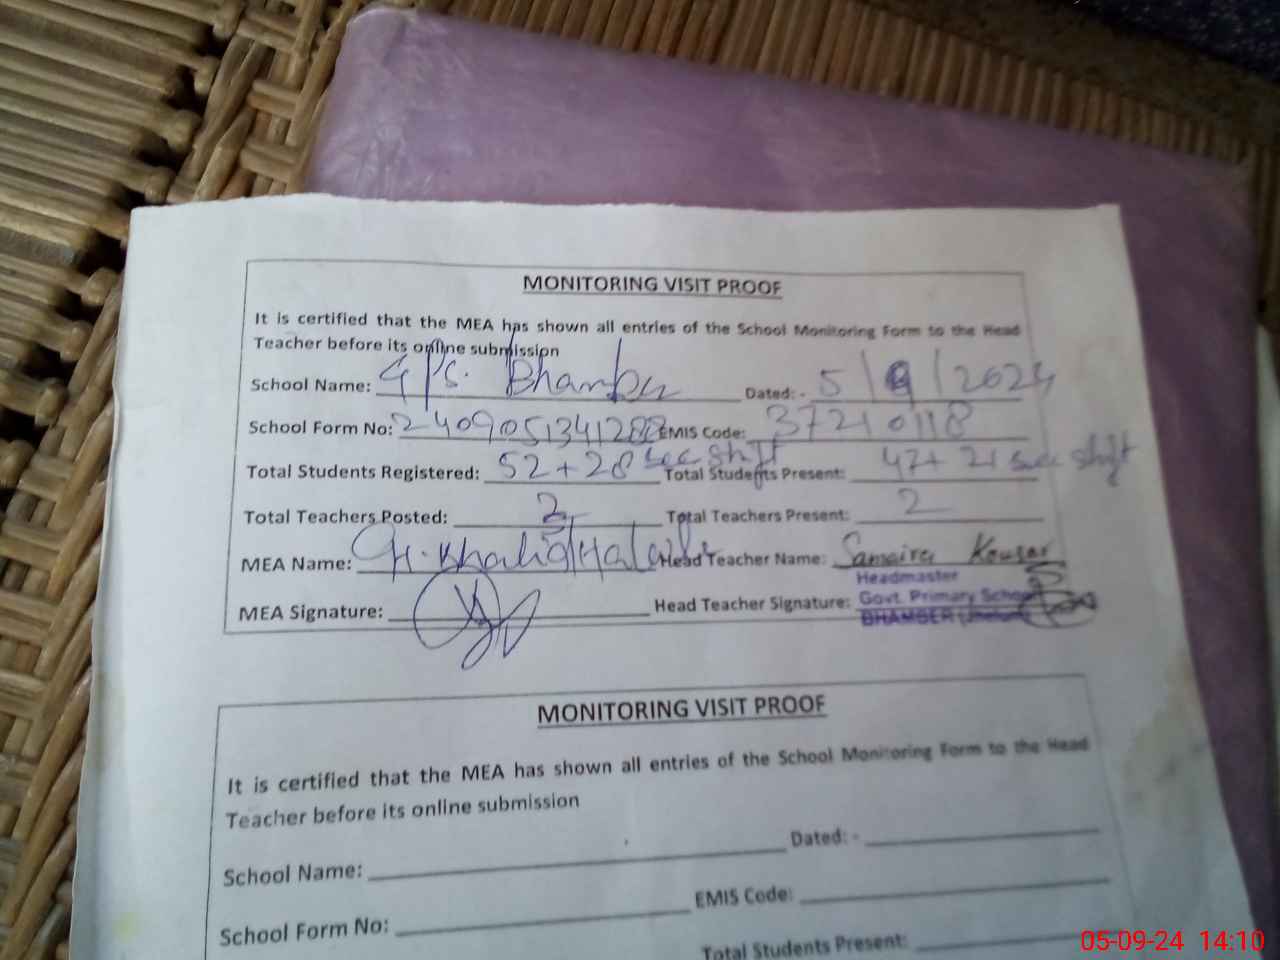 MONITORING VISIT PROOF
It is certified that the MEA has shown all entries of the School Monitoring Form to the Head
Teacher before its online submission
School Name: G/PS. Bhamber Dated: - 5/9/2024
School Form No: 2409051341288 EMIS Code: 37210118
Total Students Registered: 52+28 sec shift Total Students Present: 47+21 sec shift
Total Teachers Posted: 2 Total Teachers Present: 2
MEA Name: Khalid Head Teacher Name: Samaira Kousar
MEA Signature: Head Teacher Signature:
Headmaster
Govt. Primary School
BHAMBER (Jhelum)
MONITORING VISIT PROOF
It is certified that the MEA has shown all entries of the School Monitoring Form to the Head
Teacher before its online submission
School Name: Dated: -
School Form No: EMIS Code:
Total Students Present:
05-09-24 14:10